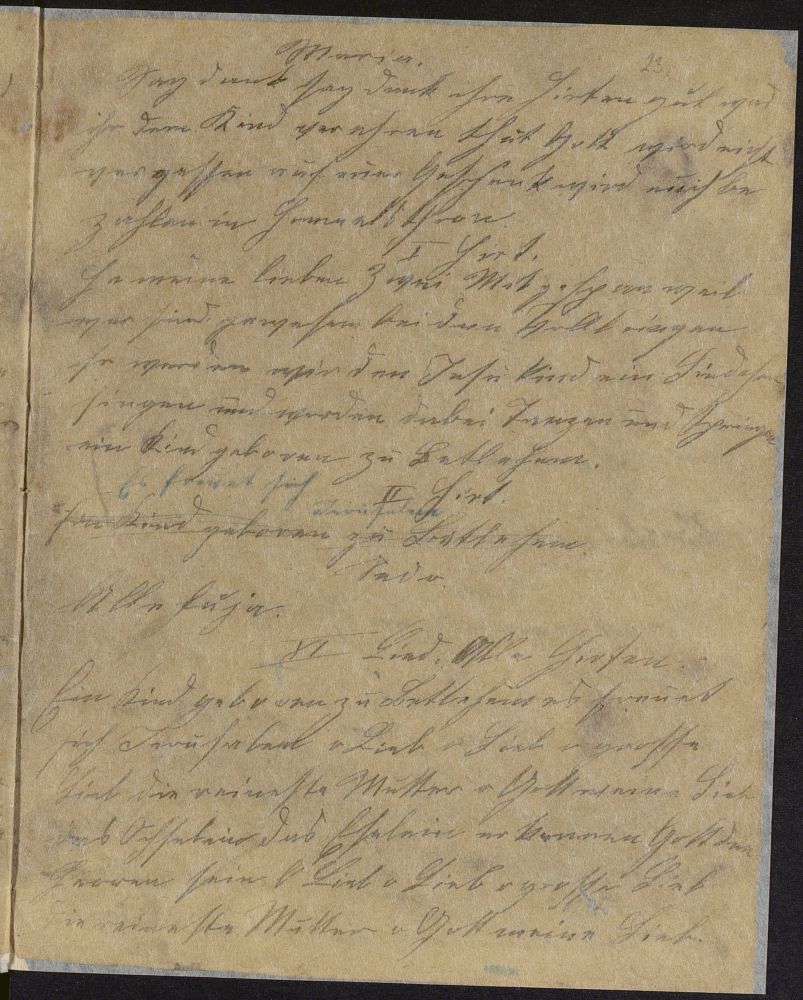 23
Maria.
Sag dank sag dank ihr Hirten gut was
ihr dem Kind verehren thut Gott wird nicht
vergessen auf euer Geschenk wird euch be
zahlen in Himmelsthron
I Hirt.
He meine lieben zwei Mitgespan weil
wir sind gewesen bei den
so werden wir den Jesu Kind ein Liedchen
singen und werden dabei Tanzen und Springen
ein Kind geboren zu Betlehem.
Es freuet sich
II Hirt.
Jerusalem
ein Kind geboren zu Betlehem
Alleluja.
VI Lied. Alle Hirten.
Ein Kind geboren zu Betlehem es freuet
sich Jerusalem o Lieb o Lieb o grosse
Lieb die reineste Mutter o Gott meine Lieb
das Ochselein das Eselein erkennen Gott den
Herren sein O Lieb o Lieb o grosse Lieb
die reineste Mutter o Gott meine Lieb.